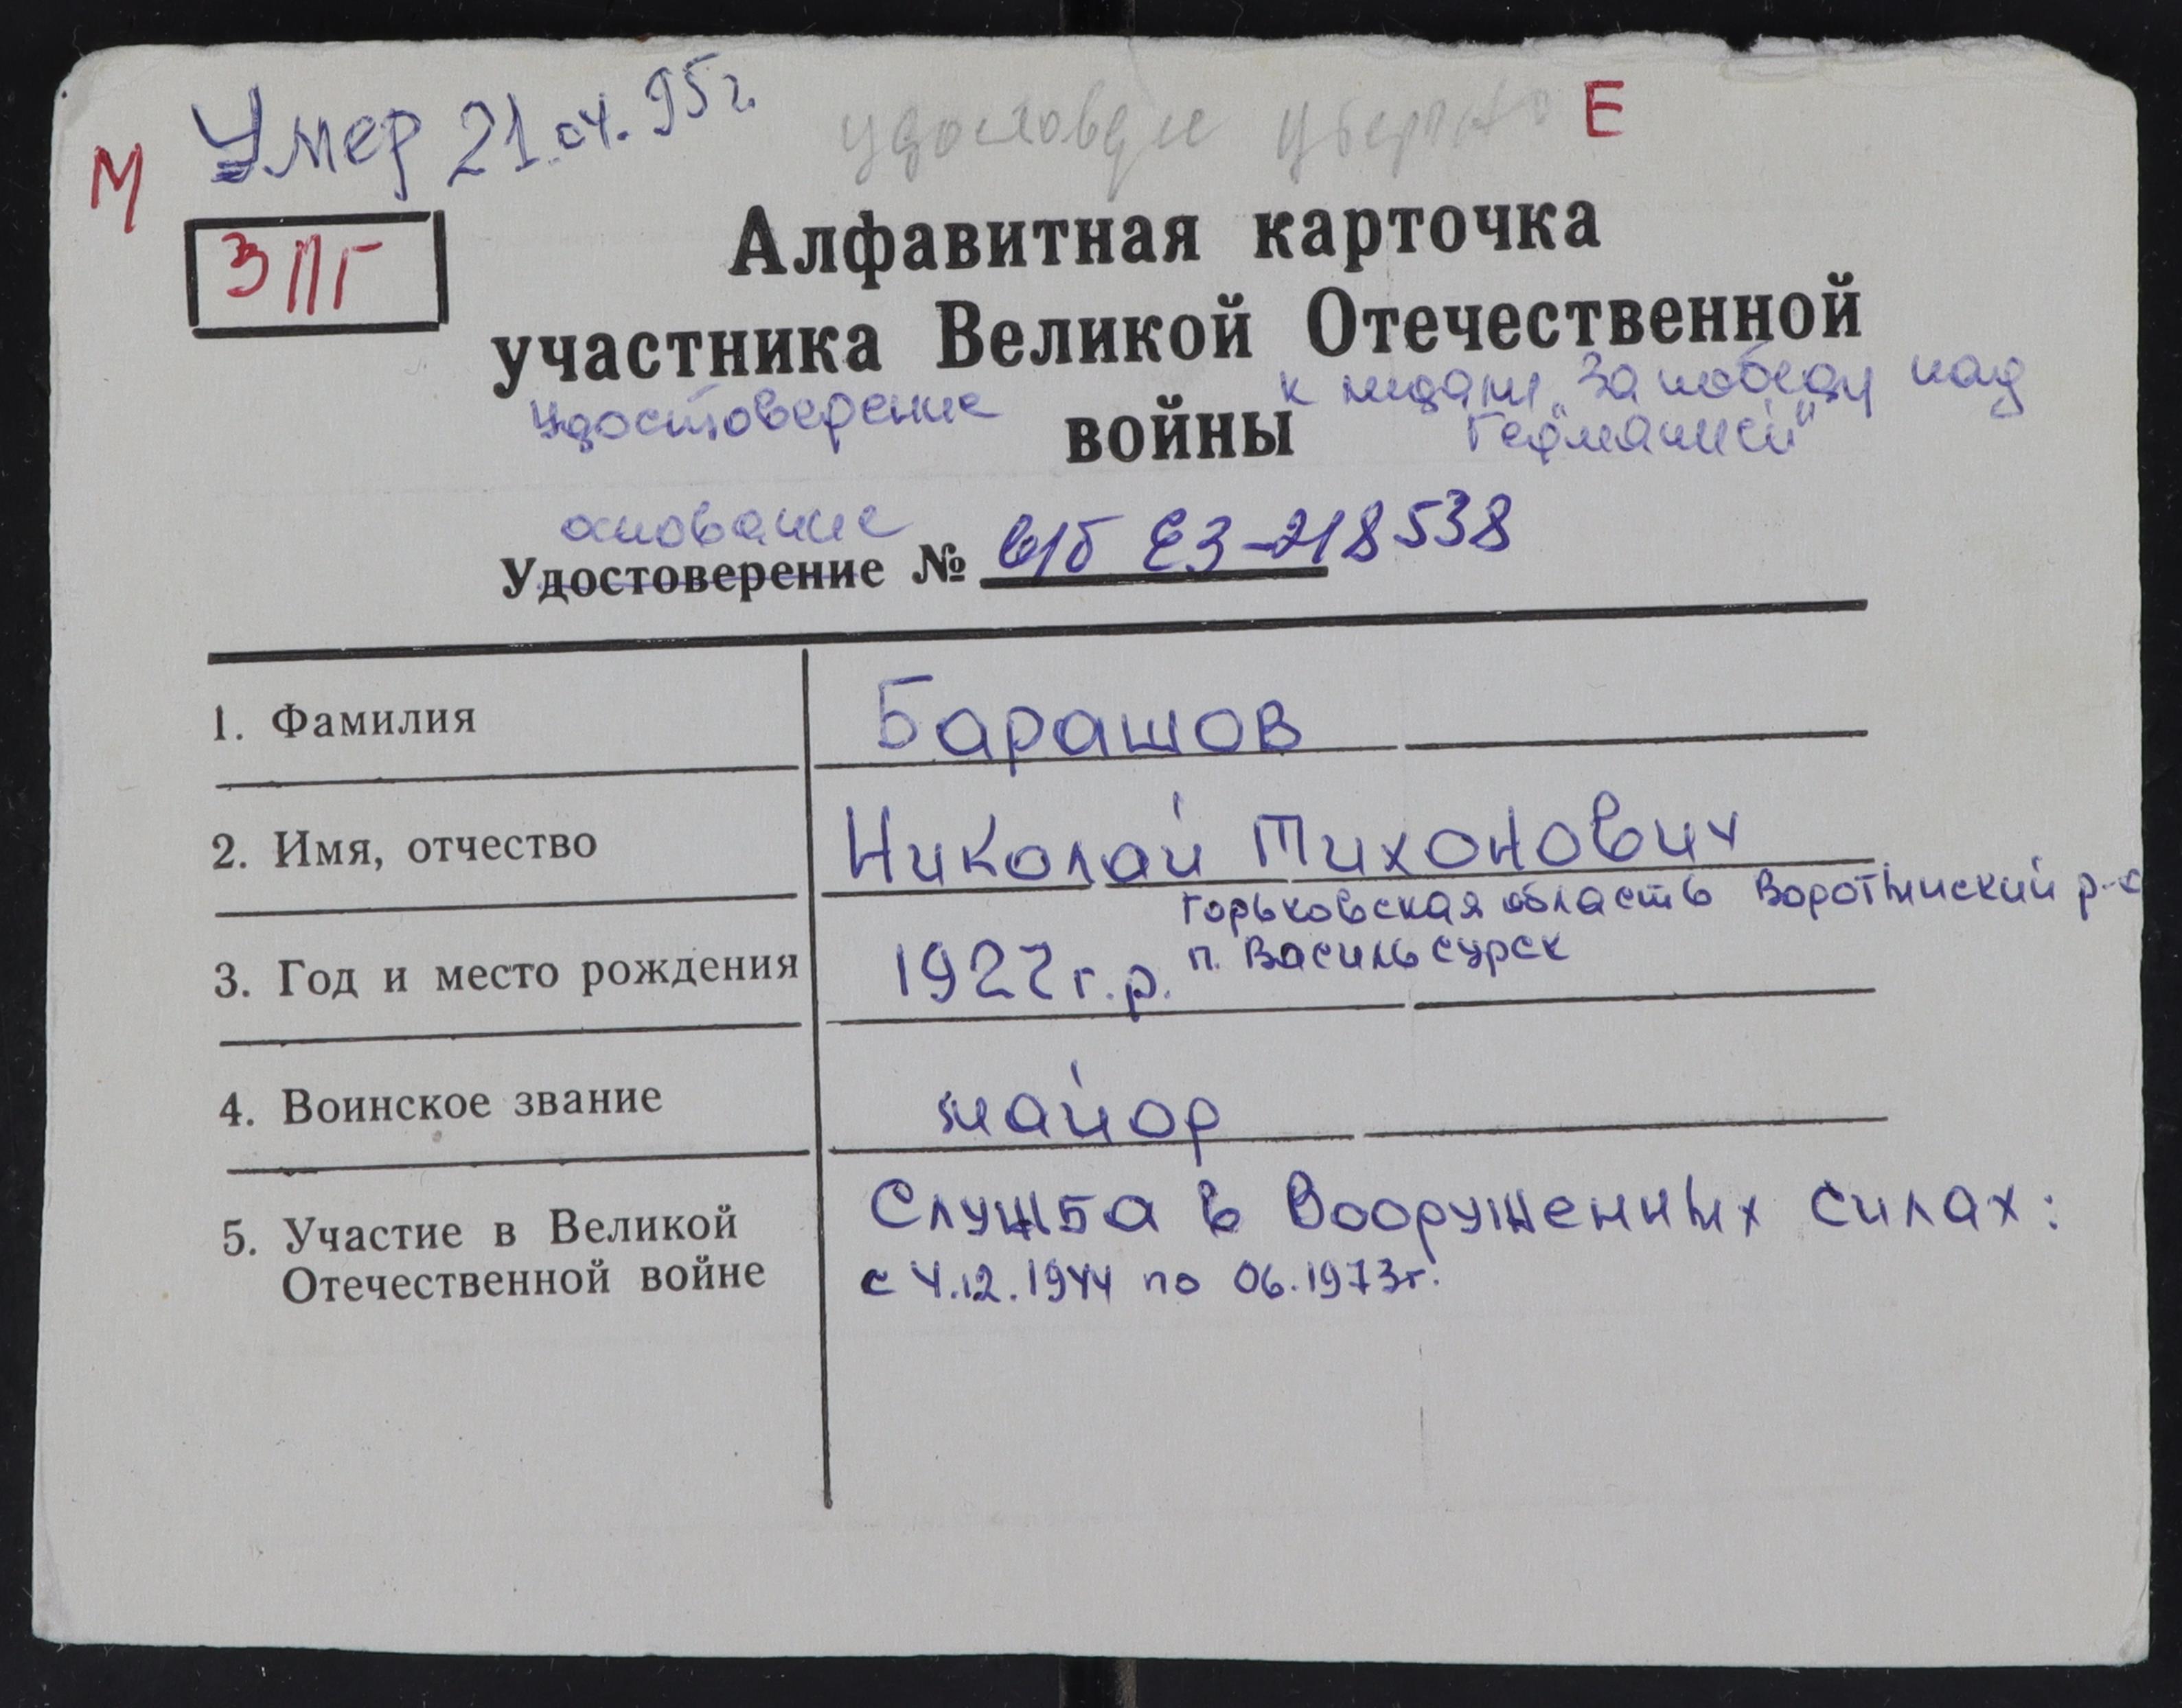 Умер 21.04.95г.
Е
М
ЗПГ
Алфавитная карточка
участника Великой Отечественной
войны
удостоверение к медали „За победу над
Германией"
основание
Удостоверение № в/б ЕЗ-218538
1. Фамилия Барашов
2. Имя, отчество Николай Тихонович
Горьковская область Воротынский р-о
п. Васильсурск
3. Год и место рождения 1927г.р.
4. Воинское звание майор
5. Участие в Великой Служба в Вооруженных силах:
Отечественной войне с 4.12.1944 по 06.1973г.